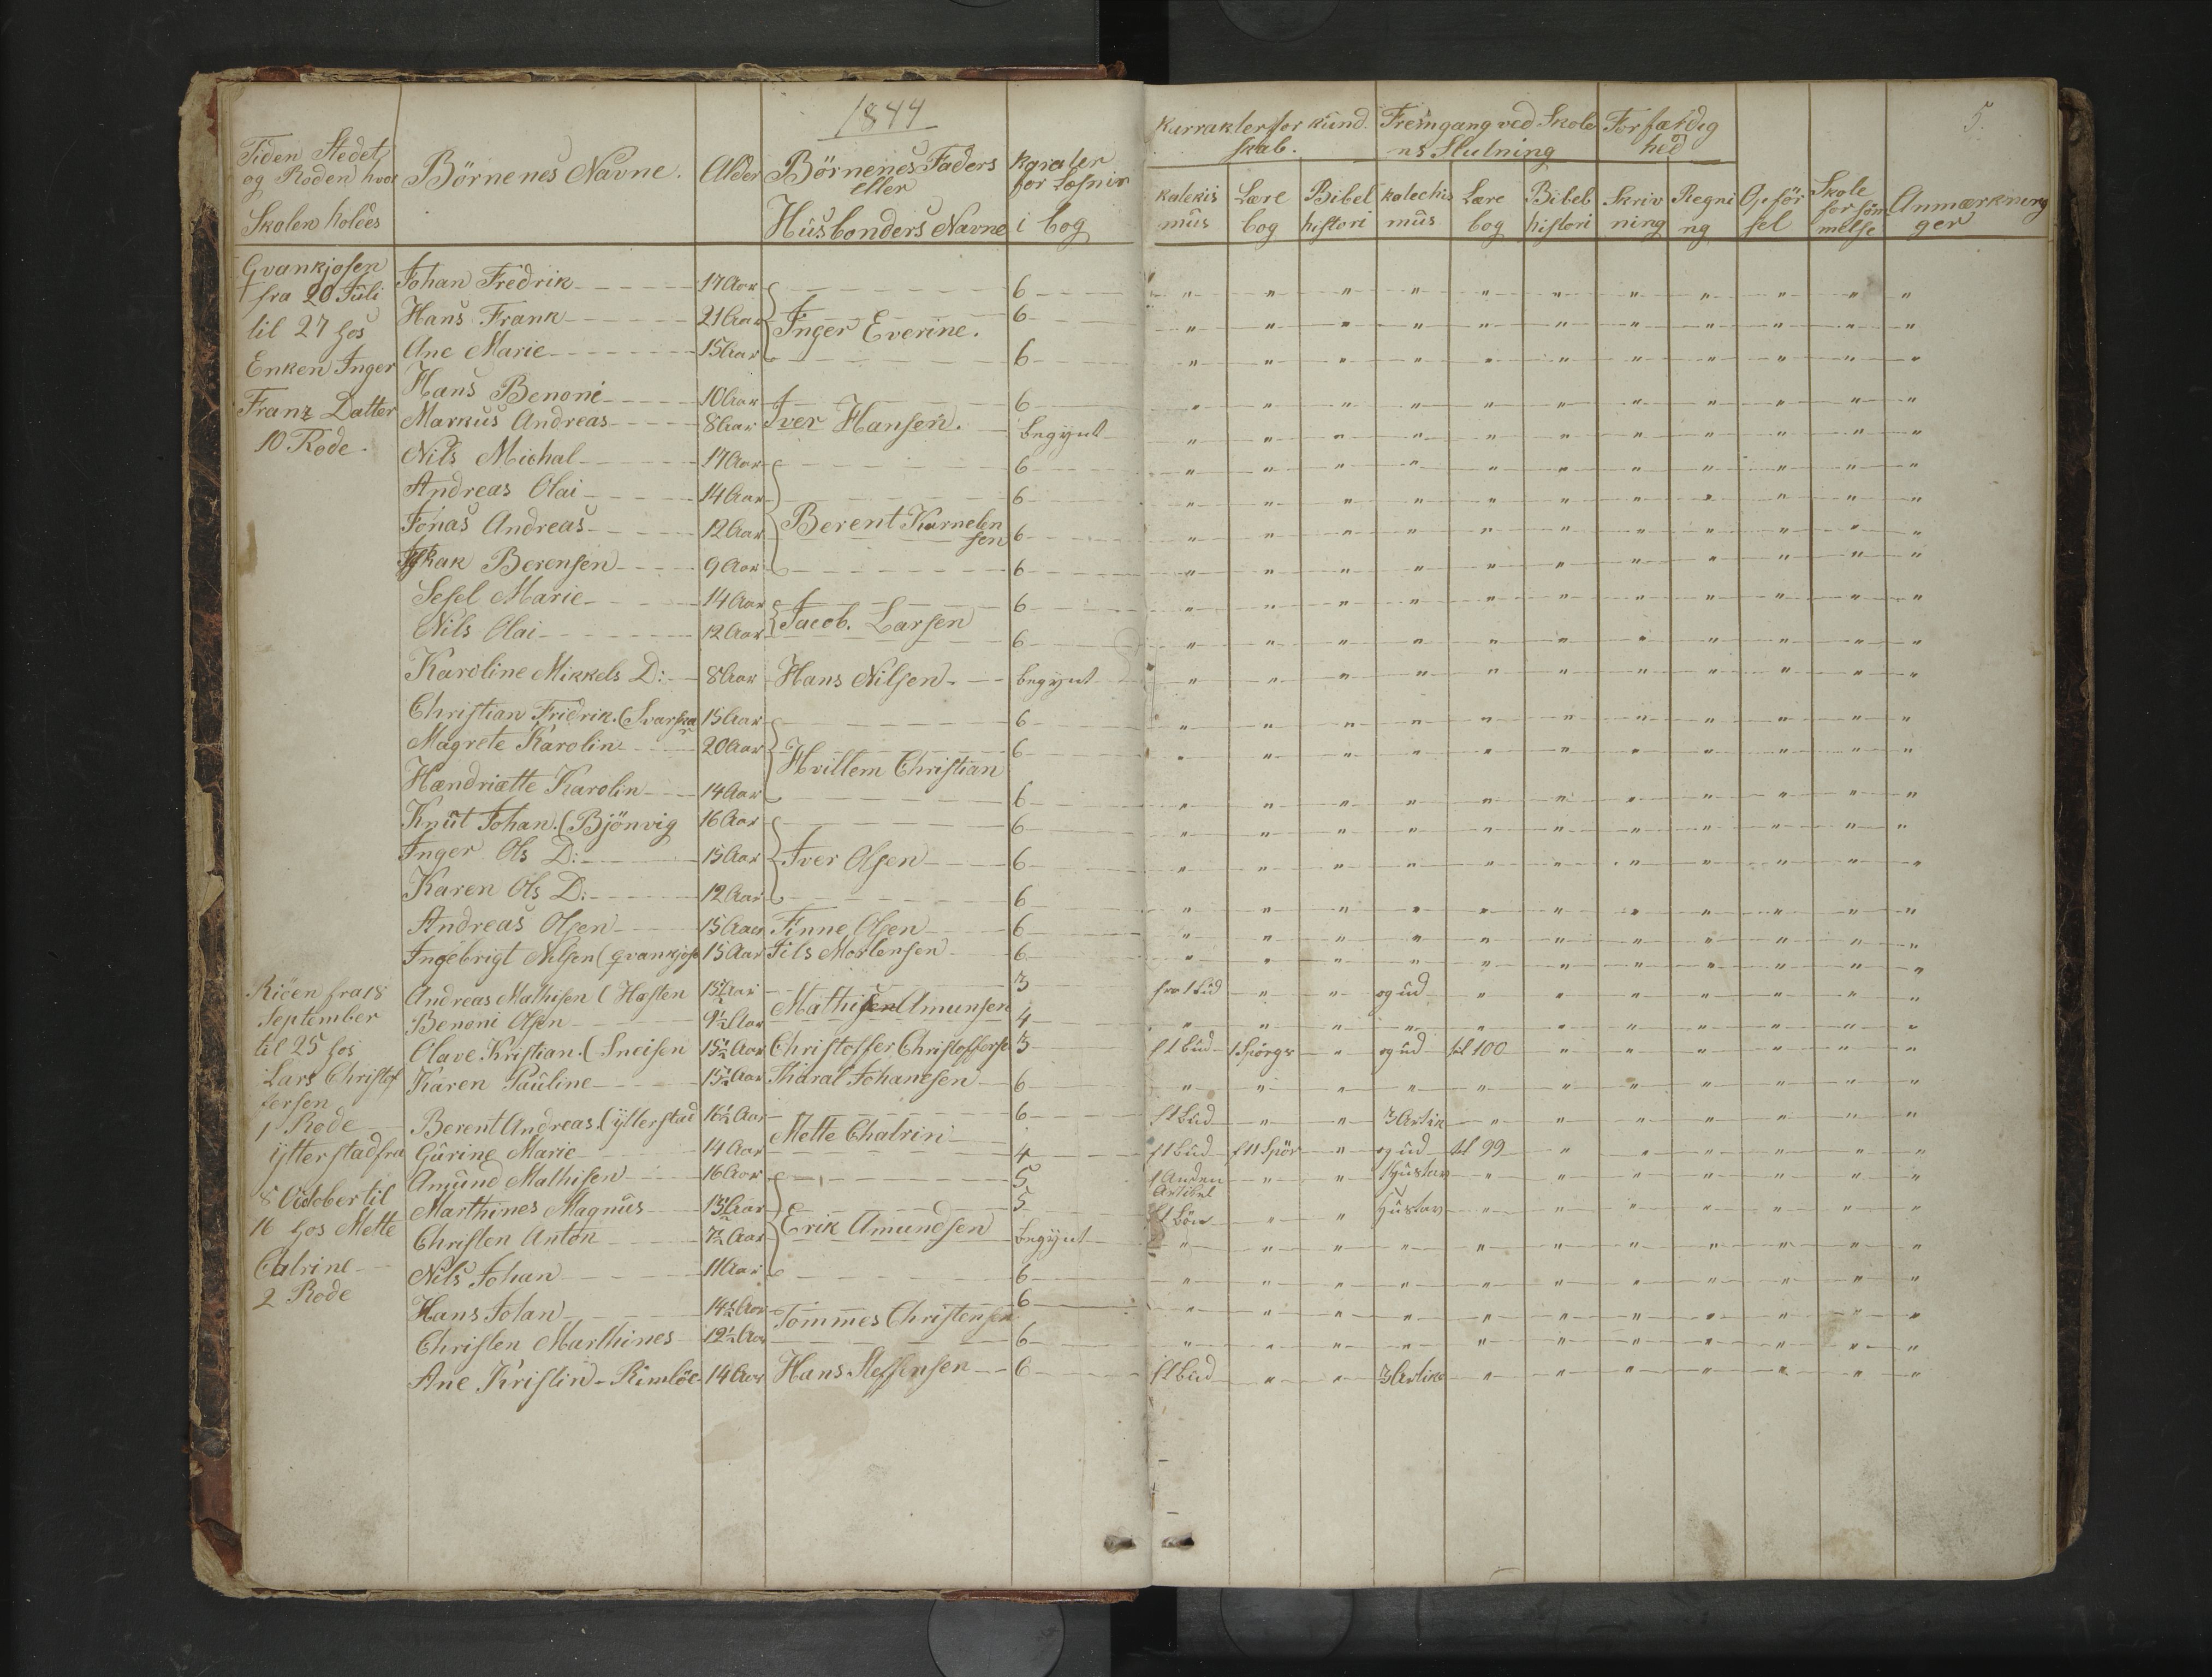 1844
5.
Tiden Stedet og Roden hvor Skolen holdes
Börnenes Navne.
Alder
Börnenes Faders eller Husbonders Navne
Karater for Læsning i bog
Karrakter for kund skab.
Fremgang ved Skole ns Slutning
For færdig hed
katekis mus
Lære bog
Bibel histori
katechis mus
Lære bog
Bibel histori
Skriv ning
Regni ng
Opför sel
Skole forsöm melse
Anmærkning ger
Gvankjosen
fra 20 Juli
til 27 hos
Enken Inger
Franz Datter
10 Rode.
Johan Fredrik 17 Aar 6 " " " " " " " " " " "
Hans Frank 21 Aar Inger Everine. 6 " " " " " " " " " " "
Ane Marie 15 Aar 6 " " " " " " " " " " "
Hans Benoni 10 Aar 6 " " " " " " " " " " "
Markus Andreas 8 Aar Iver Hansen. begynt " " " " " " " " " " "
Nils Michal 17 Aar 6 " " " " " " " " " " "
Andreas Olai 14 Aar 6 " " " " " " " " " " "
Jonas Andreas 12 Aar Berent Karnelen sen 6 " " " " " " " " " " "
Iskak Berensen 9 Aar 6 " " " " " " " " " " "
Sesel Marie 14 Aar Jacob. Larsen 6 " " " " " " " " " " "
Nils Olai 12 Aar 6 " " " " " " " " " " "
Karoline Mikkels D: 8 Aar Hans Nilsen begynt " " " " " " " " " " "
Christian Fridrik. (Svarska 15 Aar 6 " " " " " " " " " " "
Magrete Karolin 20 Aar Hvillem Christian 6 " " " " " " " " " " "
Hændriætte Karolin 14 Aar 6 " " " " " " " " " " "
Knut Johan. (Bjönvig 16 Aar 6 " " " " " " " " " " "
Inger Ols D: 15 Aar Iver Olsen 6 " " " " " " " " " " "
Karen Ols D: 12 Aar 6 " " " " " " " " " " "
Andreas Olsen 15 Aar Finne Olsen 6 " " " " " " " " " " "
Ingebrigt Nilsen (qvankjose 15 Aar Nils Mortensen 6 " " " " " " " " " " "
Rideen fra 18
September
til 25 hos
Lars Christof
fersen
1 Rode
Andreas Mathisen (Hasten 15½ Aar Mathisen Amunsen 3 fra 1 bud " " og ud " " " " " " "
Benoni Olsen 9½ Aar 4 " " " " " " " " " " "
Olave Kristian. (Sneisen 15½ Aar Christoffer Christofferse 3 f 1 bud 1 Spörgs " og ud til 100 " " " " " "
Karen Pauline 15½ Aar Tharal Johansen 6 " " " " " " " " " " "
ytterstad fra
8 Octobertil
16 hos Mette
Catrine
2 Rode
Berent Andreas. (ytterstad 16½ Aar Mette Chatrin 6 f 1 bud " " 3 Artik " " " " " " "
Gurine Marie 14 Aar 4 f 1 bud f 11 Spör " og ud til 99 " " " " " "
Amund Mathisen 16 Aar 5 f Anden Artikel " " Hustav " " " " " " "
Marthines Magnus 13½ Aar Erik Amundsen 5 f 1 Bön " " Hustav " " " " " " "
Christen Anton 7½ Aar begynt " " " " " " " " " " "
Nils Johan 11 Aar 6 " " " " " " " " " " "
Hans Johan 14½ Aar Tommes Christensen 6 " " " " " " " " " " "
Christen Marthines 12½ Aar 6 " " " " " " " " " " "
Ane Kristin - Rimlöe 14 Aar Hans Steffensen 6 f 1 bud " " 3 Artike " " " " " " "